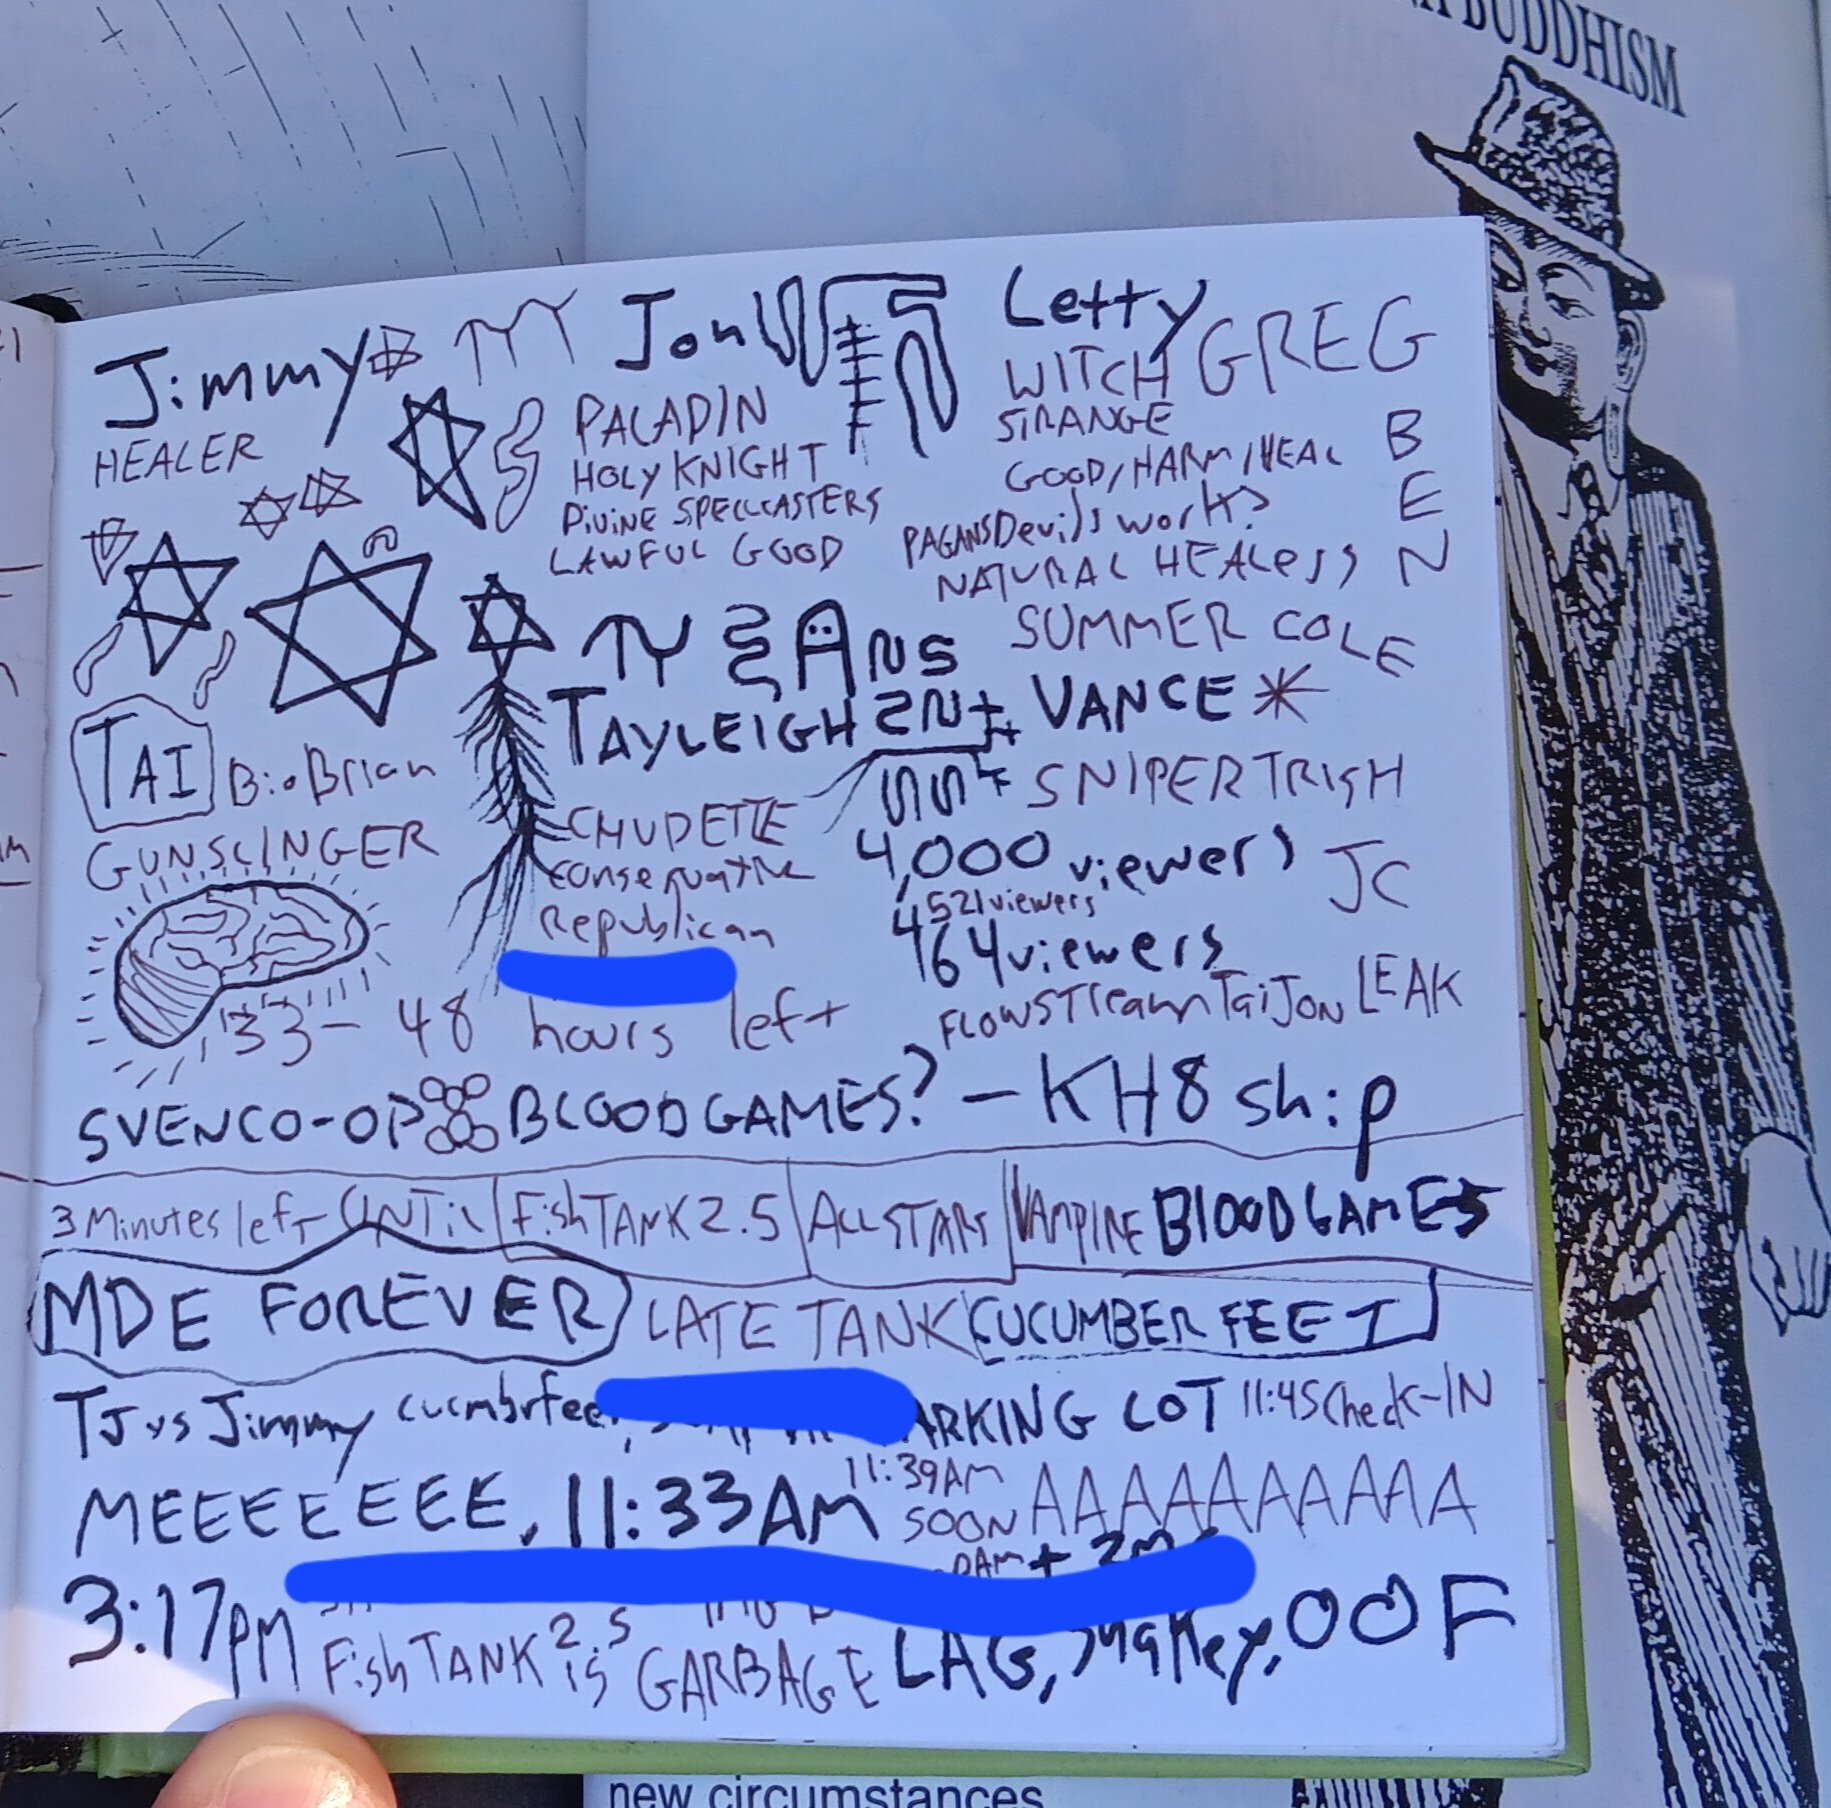 BUDDHISM
Jimmy Jon Letty
HEALER PALADIN WITCH GREG
HOLY KNIGHT STRANGE B
DiViNE SPELLCASTERS GOOD/HARM/HEAL E
LAWFUL GOOD PAGANS Devils work? N
NATURAL HEALess
TY ANS SUMMER COLE
TAYLEIGH VANCE *
TAI BioBrian SNIPER TRISH
GUNSLINGER CHUDETTE 4,000 viewers JC
conservative 4521viewers
Republican 464viewers
FLOWSTream TaiJON LEAK
33-48 hours left
SVENCO-OP BLOODGAMES? - KH8 ship
3 Minutes left UNTiL FishTANK 2.5 ALLSTARS VAMPIRE BLOODGAMES
MDE FOREVER LATE TANK CUCUMBER FEET
TJ vs Jimmy cucmbrfee ARKING LOT 11:45 Check-IN
MEEEEEEEE, 11:33AM 11:39AM SOON AAAAAAAAAAA
3:17PM
FishTANK 2.5 is GARBAGE LAG, OOF
new circumstances